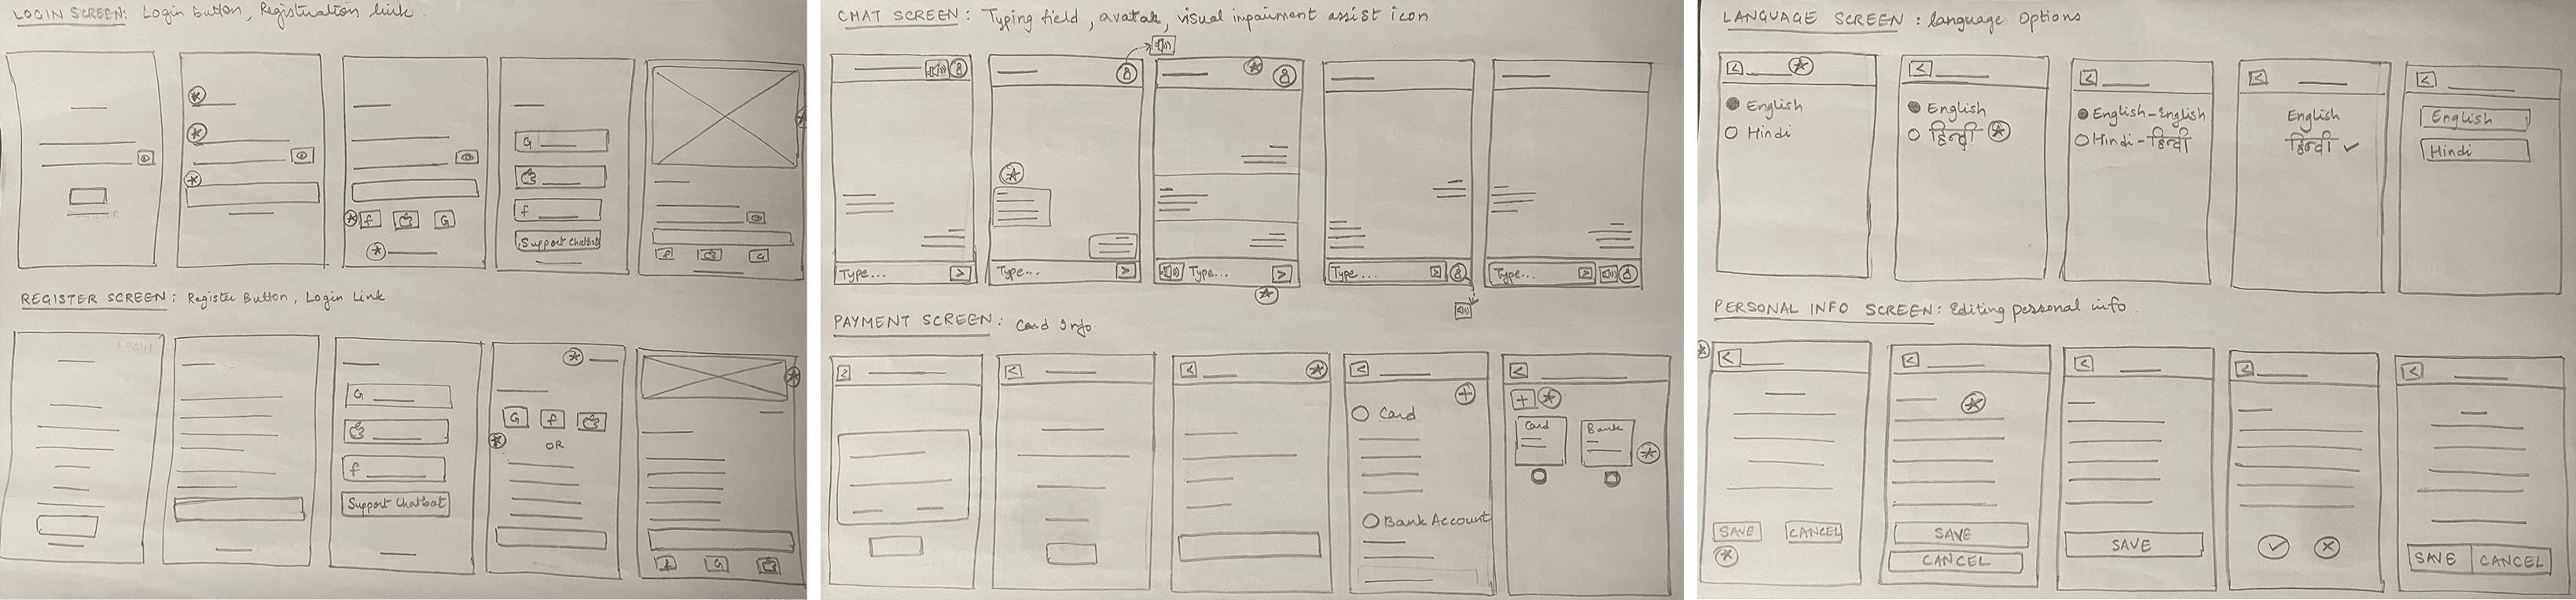 LOGIN SCREEN: Login button, Registration link.
G
f
Support Chatbot
f
G
f
G
REGISTER SCREEN: Register Button, Login Link
LOGIN
G
f
Support Chatbot
G
f
OR
f
G
CHAT SCREEN: Typing field, avatar, visual impairment assist icon
Type...
Type...
Type...
Type...
Type...
PAYMENT SCREEN: Card Info.
Card
Bank Account
Card
Bank
LANGUAGE SCREEN: language Options
English
Hindi
English
हिन्दी
English-English
Hindi-हिन्दी
English
हिन्दी
English
Hindi
PERSONAL INFO SCREEN: Editing personal info.
SAVE CANCEL
SAVE
CANCEL
SAVE
SAVE CANCEL